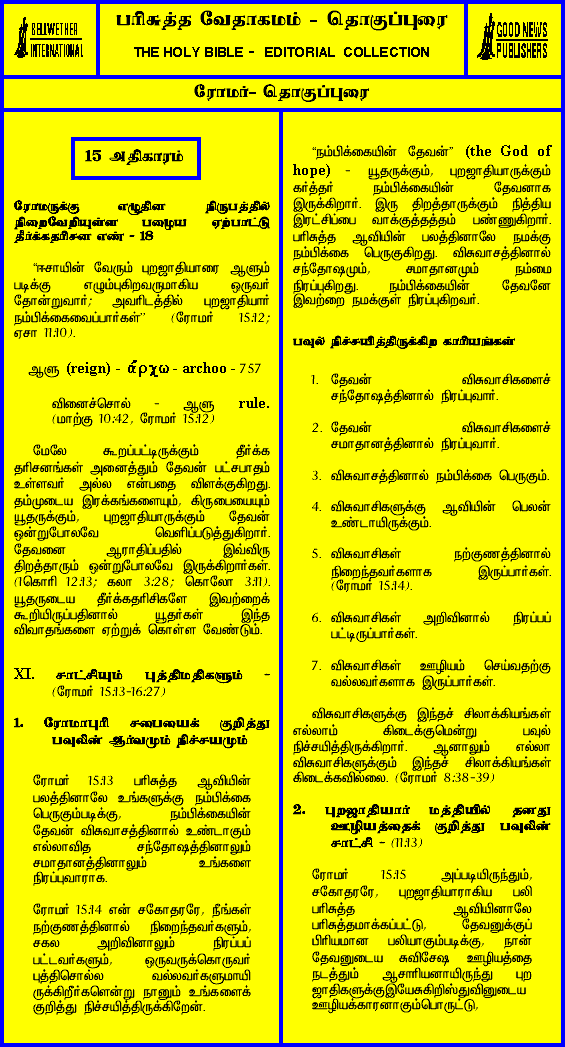 BELLWETHER
INTERNATIONAL
பரிசுத்த வேதாகமம் - தொகுப்புரை
THE HOLY BIBLE - EDITORIAL COLLECTION
GOOD NEWS
PUBLISHERS
ரோமர்- தொகுப்புரை
15 அதிகாரம்
ரோமருக்கு எழுதின நிருபத்தில்
நிறைவேறியுள்ள பழைய ஏற்பாட்டு
தீர்க்கதரிசன எண் - 18
“ஈசாயின் வேரும் புறஜாதியாரை ஆளும்
படிக்கு எழும்புகிறவருமாகிய ஒருவர்
தோன்றுவார்; அவரிடத்தில் புறஜாதியார்
நம்பிக்கைவைப்பார்கள்” (ரோமர் 15:12;
ஏசா 11:10).
ஆளு (reign) - ἄρχω - archoo - 757
வினைச்சொல் - ஆளு rule.
(மாற்கு 10:42, ரோமர் 15:12)
மேலே கூறப்பட்டிருக்கும் தீர்க்க
தரிசனங்கள் அனைத்தும் தேவன் பட்சபாதம்
உள்ளவர் அல்ல என்பதை விளக்குகிறது.
தம்முடைய இரக்கங்களையும், கிருபையையும்
யூதருக்கும், புறஜாதியாருக்கும் தேவன்
ஒன்றுபோலவே வெளிப்படுத்துகிறார்.
தேவனை ஆராதிப்பதில் இவ்விரு
திறத்தாரும் ஒன்றுபோலவே இருக்கிறார்கள்.
(1கொரி 12:13; கலா 3:28; கொலோ 3:11).
யூதருடைய தீர்க்கதரிசிகளே இவற்றைக்
கூறியிருப்பதினால் யூதர்கள் இந்த
விவாதங்களை ஏற்றுக் கொள்ள வேண்டும்.
XI. சாட்சியும் புத்திமதிகளும் -
(ரோமர் 15:13-16:27)
1. ரோமாபுரி சபையைக் குறித்து
பவுலின் ஆர்வமும் நிச்சயமும்
ரோமர் 15:13 பரிசுத்த ஆவியின்
பலத்தினாலே உங்களுக்கு நம்பிக்கை
பெருகும்படிக்கு, நம்பிக்கையின்
தேவன் விசுவாசத்தினால் உண்டாகும்
எல்லாவித சந்தோஷத்தினாலும்
சமாதானத்தினாலும் உங்களை
நிரப்புவாராக.
ரோமர் 15:14 என் சகோதரரே, நீங்கள்
நற்குணத்தினால் நிறைந்தவர்களும்,
சகல அறிவினாலும் நிரப்பப்
பட்டவர்களும், ஒருவருக்கொருவர்
புத்திசொல்ல வல்லவர்களுமாயி
ருக்கிறீர்களென்று நானும் உங்களைக்
குறித்து நிச்சயித்திருக்கிறேன்.
“நம்பிக்கையின் தேவன்” (the God of
hope) - யூதருக்கும், புறஜாதியாருக்கும்
கர்த்தர் நம்பிக்கையின் தேவனாக
இருக்கிறார். இரு திறத்தாருக்கும் நித்திய
இரட்சிப்பை வாக்குத்தத்தம் பண்ணுகிறார்.
பரிசுத்த ஆவியின் பலத்தினாலே நமக்கு
நம்பிக்கை பெருகுகிறது. விசுவாசத்தினால்
சந்தோஷமும், சமாதானமும் நம்மை
நிரப்புகிறது. நம்பிக்கையின் தேவனே
இவற்றை நமக்குள் நிரப்புகிறவர்.
பவுல் நிச்சயித்திருக்கிற காரியங்கள்
1. தேவன் விசுவாசிகளைச்
சந்தோஷத்தினால் நிரப்புவார்.
2. தேவன் விசுவாசிகளைச்
சமாதானத்தினால் நிரப்புவார்.
3. விசுவாசத்தினால் நம்பிக்கை பெருகும்.
4. விசுவாசிகளுக்கு ஆவியின் பெலன்
உண்டாயிருக்கும்.
5. விசுவாசிகள் நற்குணத்தினால்
நிறைந்தவர்களாக இருப்பார்கள்.
(ரோமர் 15:14).
6. விசுவாசிகள் அறிவினால் நிரப்பப்
பட்டிருப்பார்கள்.
7. விசுவாசிகள் ஊழியம் செய்வதற்கு
வல்லவர்களாக இருப்பார்கள்.
விசுவாசிகளுக்கு இந்தச் சிலாக்கியங்கள்
எல்லாம் கிடைக்குமென்று பவுல்
நிச்சயித்திருக்கிறார். ஆனாலும் எல்லா
விசுவாசிகளுக்கும் இந்தச் சிலாக்கியங்கள்
கிடைக்கவில்லை. (ரோமர் 8:38-39)
2. புறஜாதியார் மத்தியில் தனது
ஊழியத்தைக் குறித்து பவுலின்
சாட்சி - (11:13)
ரோமர் 15:15 அப்படியிருந்தும்,
சகோதரரே, புறஜாதியாராகிய பலி
பரிசுத்த ஆவியினாலே
பரிசுத்தமாக்கப்பட்டு, தேவனுக்குப்
பிரியமான பலியாகும்படிக்கு, நான்
தேவனுடைய சுவிசேஷ ஊழியத்தை
நடத்தும் ஆசாரியனாயிருந்து புற
ஜாதிகளுக்குஇயேசுகிறிஸ்துவினுடைய
ஊழியக்காரனாகும்பொருட்டு,